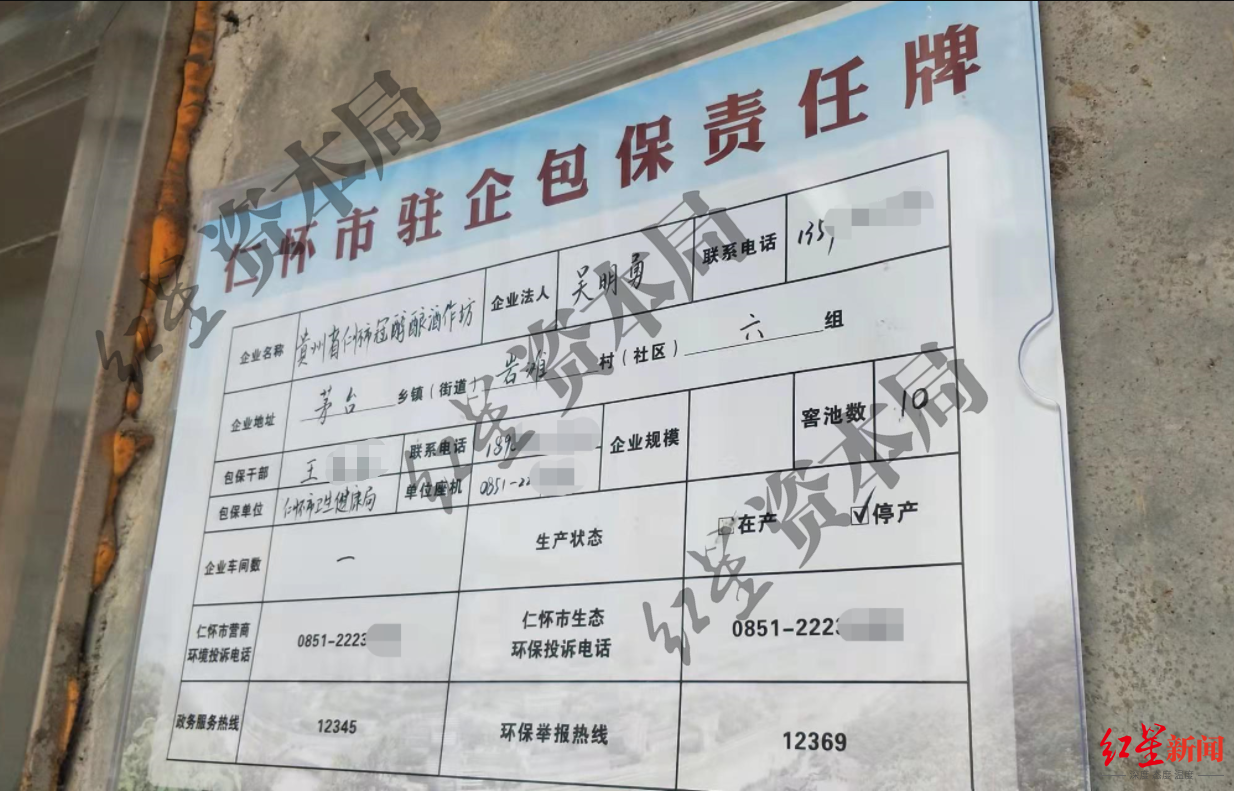 仁怀市驻企包保责任牌
企业名称 贵州省仁怀市冠醇酿酒作坊 企业法人 吴明勇 联系电话 135
企业地址 茅台 乡镇（街道） 岩滩 村（社区） 六 组
包保干部 王 联系电话 189 企业规模 窖池数 10
包保单位 仁怀市卫生健康局 单位座机 0851-22
企业车间数 一 生产状态 在产 ✓停产
仁怀市营商
环境投诉电话 0851-2223
仁怀市生态
环保投诉电话 0851-2223
政务服务热线 12345 环保举报热线 12369
红星 资本局
红星 资本局
红星 资本局
红星新闻